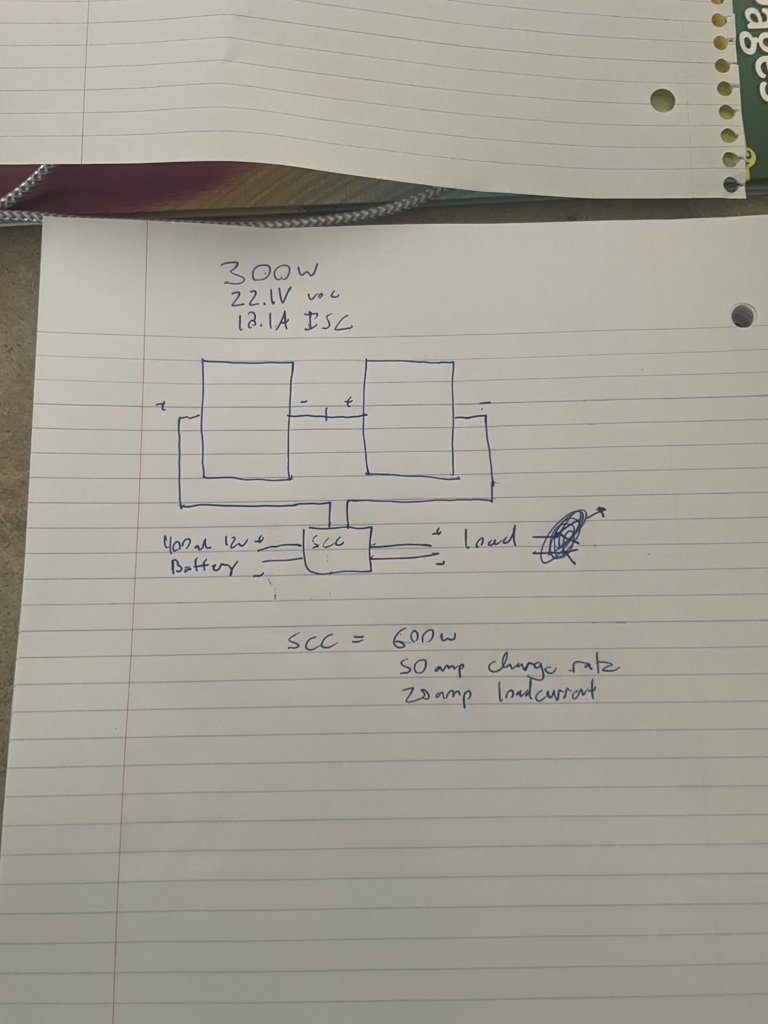 ages
300W
22.1V voc
18.1A ISC
+ - + -
400ah 12v + SCC + Load
Battery - -
SCC = 600w
50 amp charge rate
20amp load current